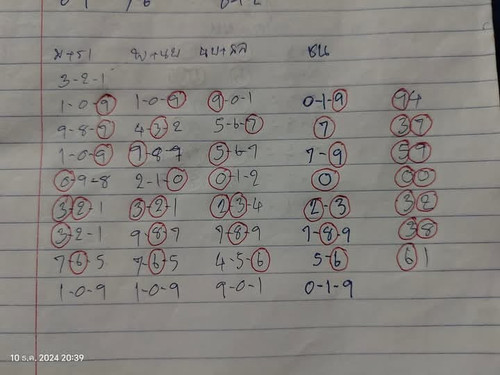 ม+รา พ+นย นบ+สส ชน
3-2-1
1-0-9 1-0-9 9-0-1 0-1-9 94
9-8-9 4-3-2 5-6-7 7 37
1-0-9 9-8-7 5-6-7 7-9 59
0-9-8 2-1-0 0-1-2 0 00
3-2-1 3-2-1 2-3-4 2-3 32
3-2-1 9-8-7 7-8-9 7-8-9 38
7-6-5 7-6-5 4-5-6 5-6 61
1-0-9 1-0-9 9-0-1 0-1-9
10 ธ.ค. 2024 20:39